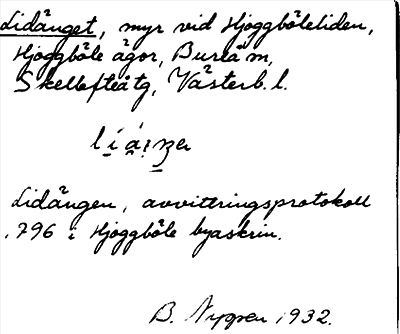 Lidånget, myr vid Hjoggböleliden,
Hjoggböle ägor, Bureå sn,
Skellefteå tg, Västerb. l.
Lidången, avvittringsprotokoll
796 i Hjoggböle byaskrin.
B. Nygren 1932.